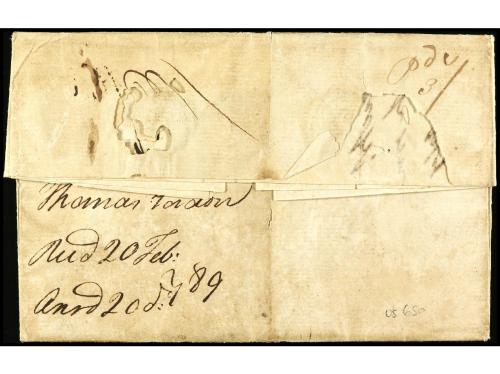 Pd
3/
Thomas
Recd 20 Feb:
Ansd 20 do: 89
US 650